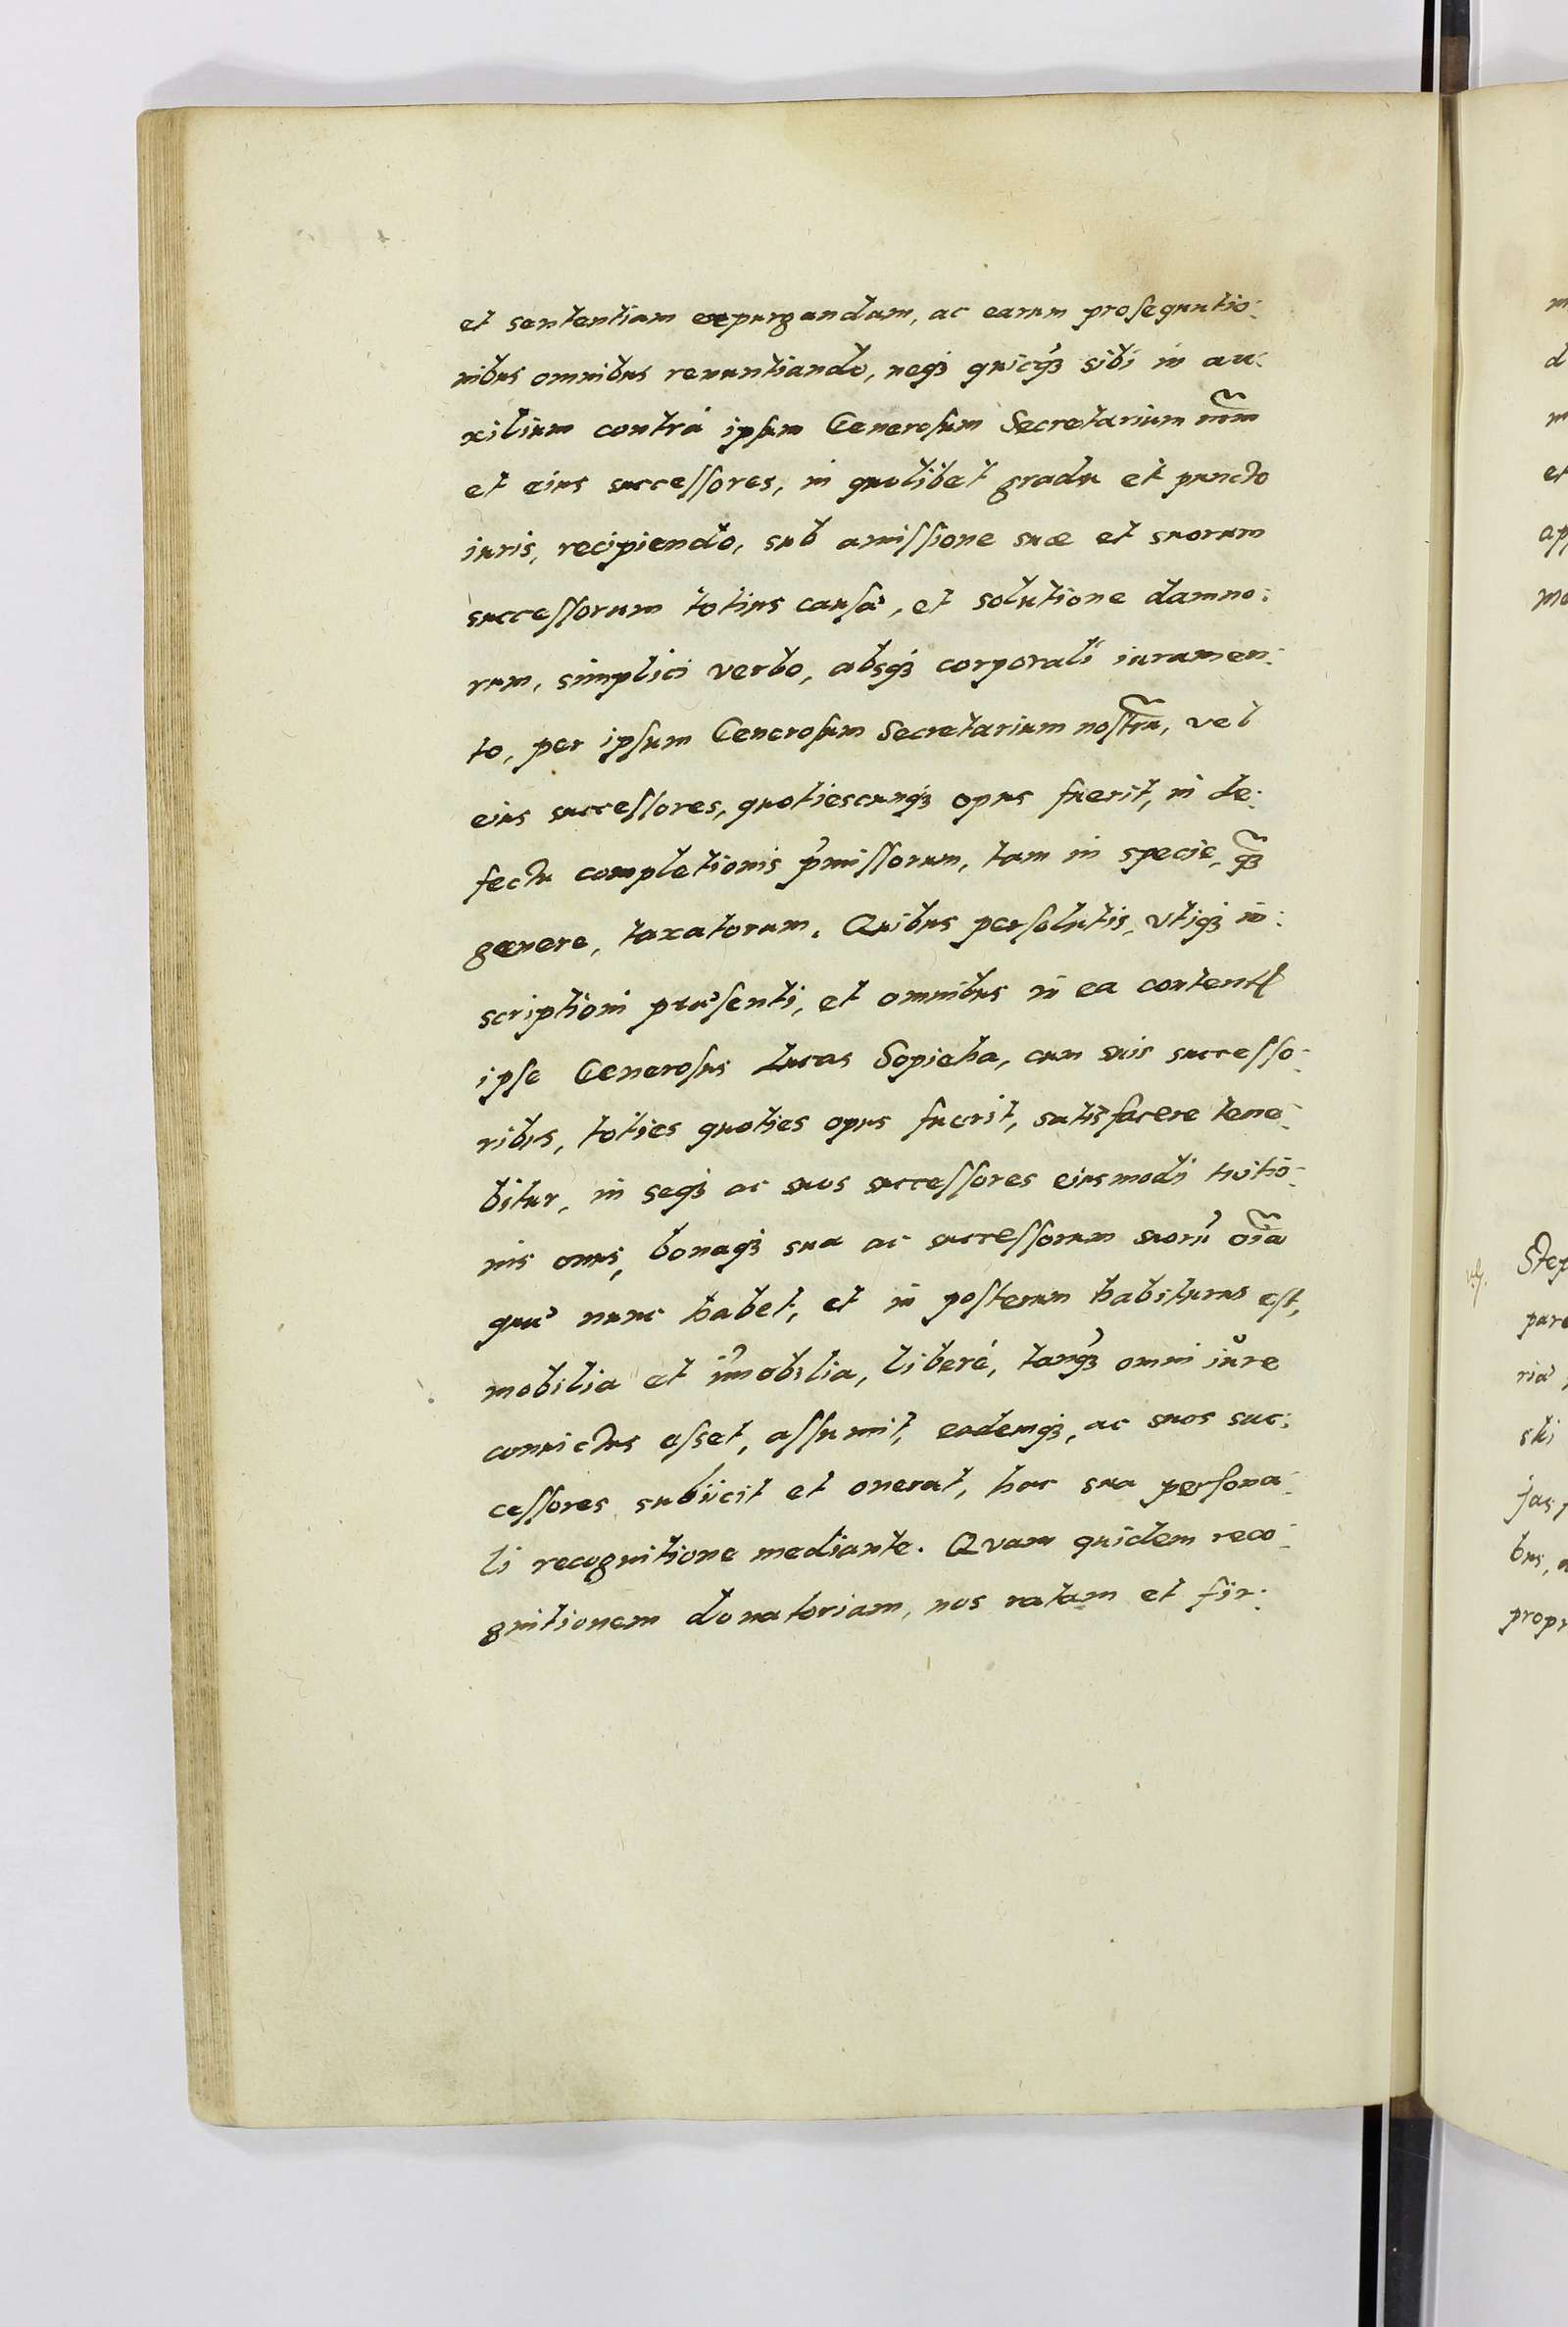 et sententiam expurgandam, ac earum prosequutio:
nibus omnibus renuntiando, neqꝫ quicqꝫ sibi in au:
xilium contrà ipsum Generosum Secretarium nr̃m
et eius successores, in quolibet gradu et puncto
iuris, recipiendo, sub amissione suæ et suorum
successorum totius causæ, et solutione damno:
rum, simplici verbo, absqꝫ corporali iuramen:
to, per ipsum Generosum Secretarium nostrũ, vel
eius successores, quotiescunqꝫ opus fuerit, in de:
fectu completionis p̃missorum, tam in specie, qꝫ̃
genere, taxatorum. Quibus persolutis, vtiqꝫ in:
scriptioni præsenti, et omnibus in ea contentꝭ
ipse Generosus Lucas Sopieha, cum suis successo:
ribus, toties quoties opus fuerit, satisfacere tene:
bitur, in seqꝫ ac suos successores eiusmodi tuitio:
nis onus, bonaqꝫ sua ac successorum suorũ oĩa
quæ nunc habet, et in posterum habiturus est,
mobilia et im̃obilia, liberè, tanqꝫ omni iure
conuictus esset, assumit, eademqꝫ, ac suos suc:
cessores subiicit et onerat, hac sua persona:
li recognitione mediante. Qvam quidem reco:
gnitionem donatoriam, nos ratam et fir:
Step
pare
ria
ski
jas
bus,
propr